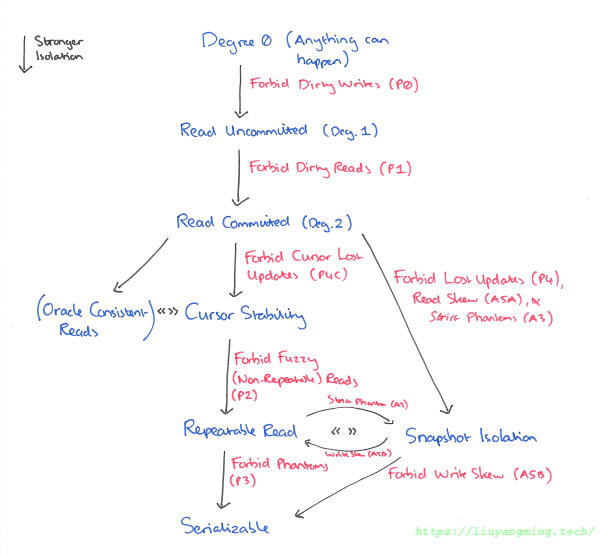 Stronger
Isolation
Degree 0 (Anything can
happen)
Forbid Dirty Writes (P0)
Read Uncommitted (Deg. 1)
Forbid Dirty Reads (P1)
Read Committed (Deg. 2)
Forbid Cursor Lost
Updates (P4C)
Forbid Lost Updates (P4),
Read Skew (A5A), &
Strict Phantoms (A3)
(Oracle Consistent
Reads)
«»
Cursor Stability
Forbid Fuzzy
(Non-Repeatable) Reads
(P2)
Strict Phantom (A3)
Repeatable Read
« »
Snapshot Isolation
Write Skew (A5B)
Forbid Phantoms
(P3)
Forbid Write Skew (A5B)
Serializable
https://liuyangming.tech/